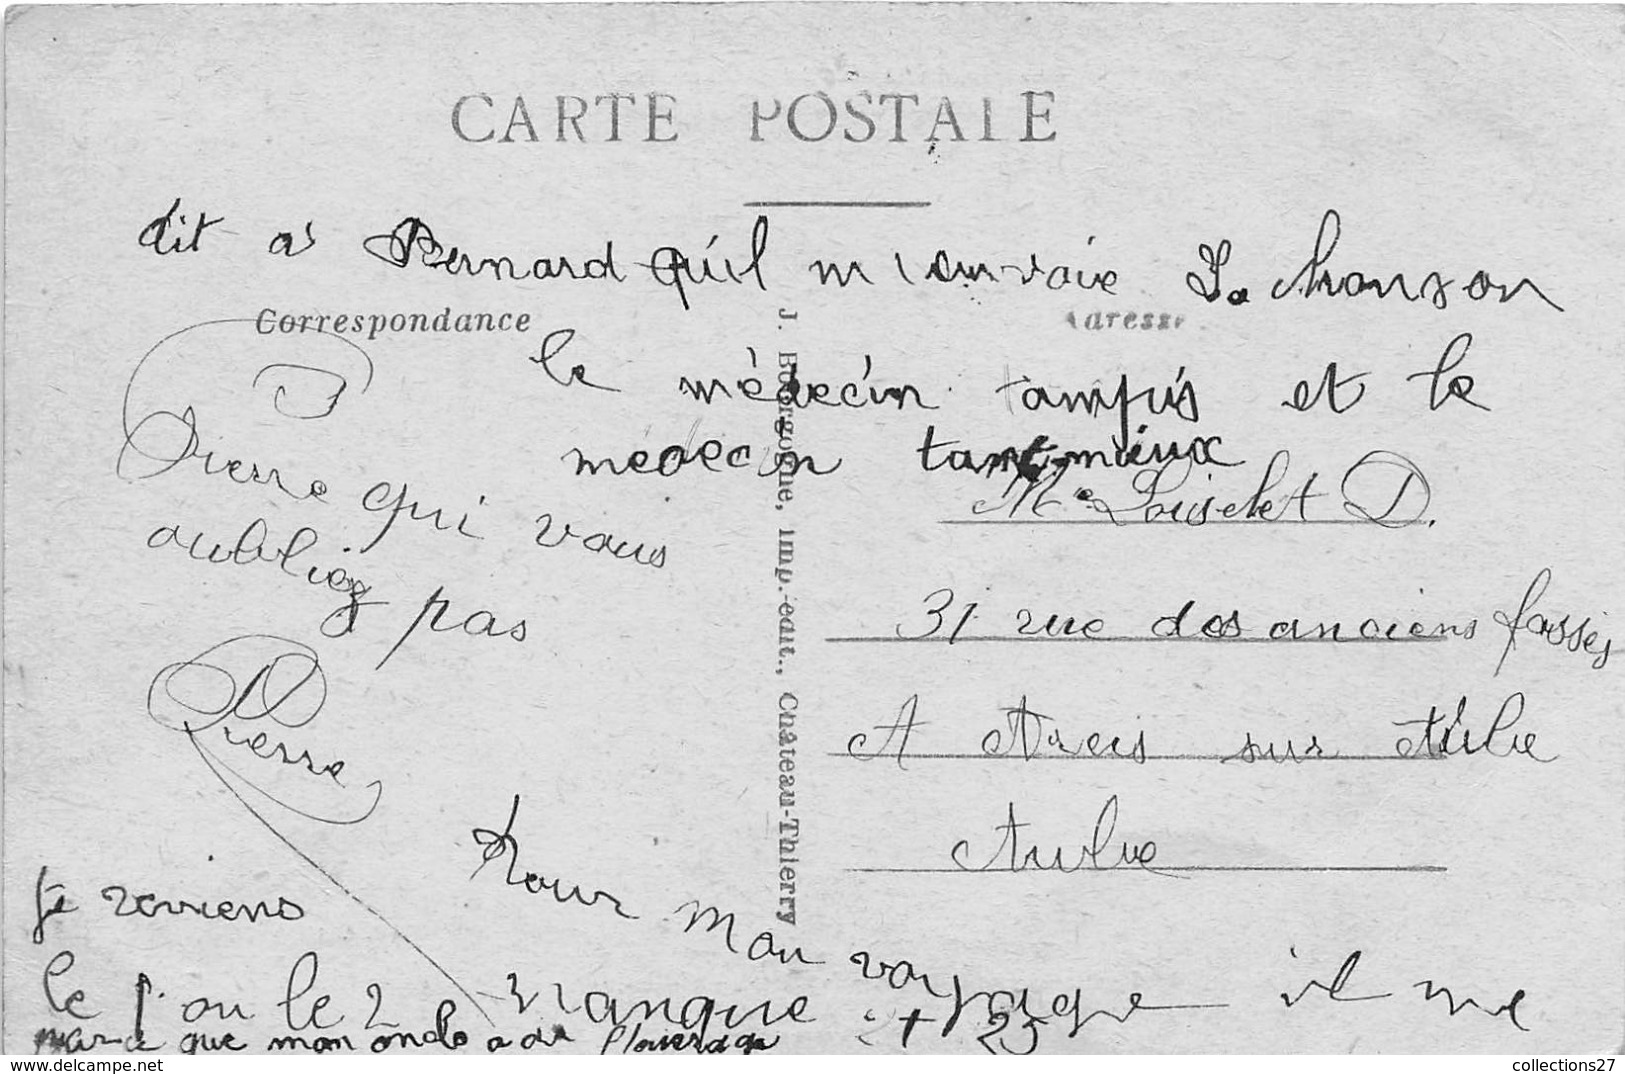 CARTE POSTALE
dit a Bernard qu'il m'envoie La chanson
Correspondance
Adresse
le médecin tampis et le
medecin tant mieux
Pierre qui vous
oubliez pas
Pierre
Me Loiselet D.
31 rue des anciens fossés
A Arcis sur Aube
Aube
J. Bourgogne, Imp.-édit., Château-Thierry
Je reviens
le 1 ou le 2
Pour mon voyage il me
manque 25
que mon oncle a
collections27